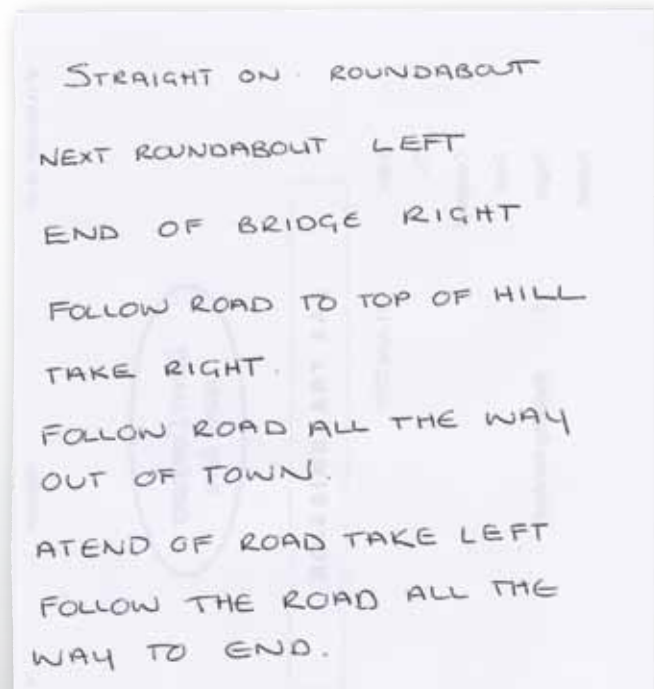 STRAIGHT ON ROUNDABOUT
NEXT ROUNDABOUT LEFT
END OF BRIDGE RIGHT
FOLLOW ROAD TO TOP OF HILL
TAKE RIGHT.
FOLLOW ROAD ALL THE WAY
OUT OF TOWN.
ATEND OF ROAD TAKE LEFT
FOLLOW THE ROAD ALL THE
WAY TO END.